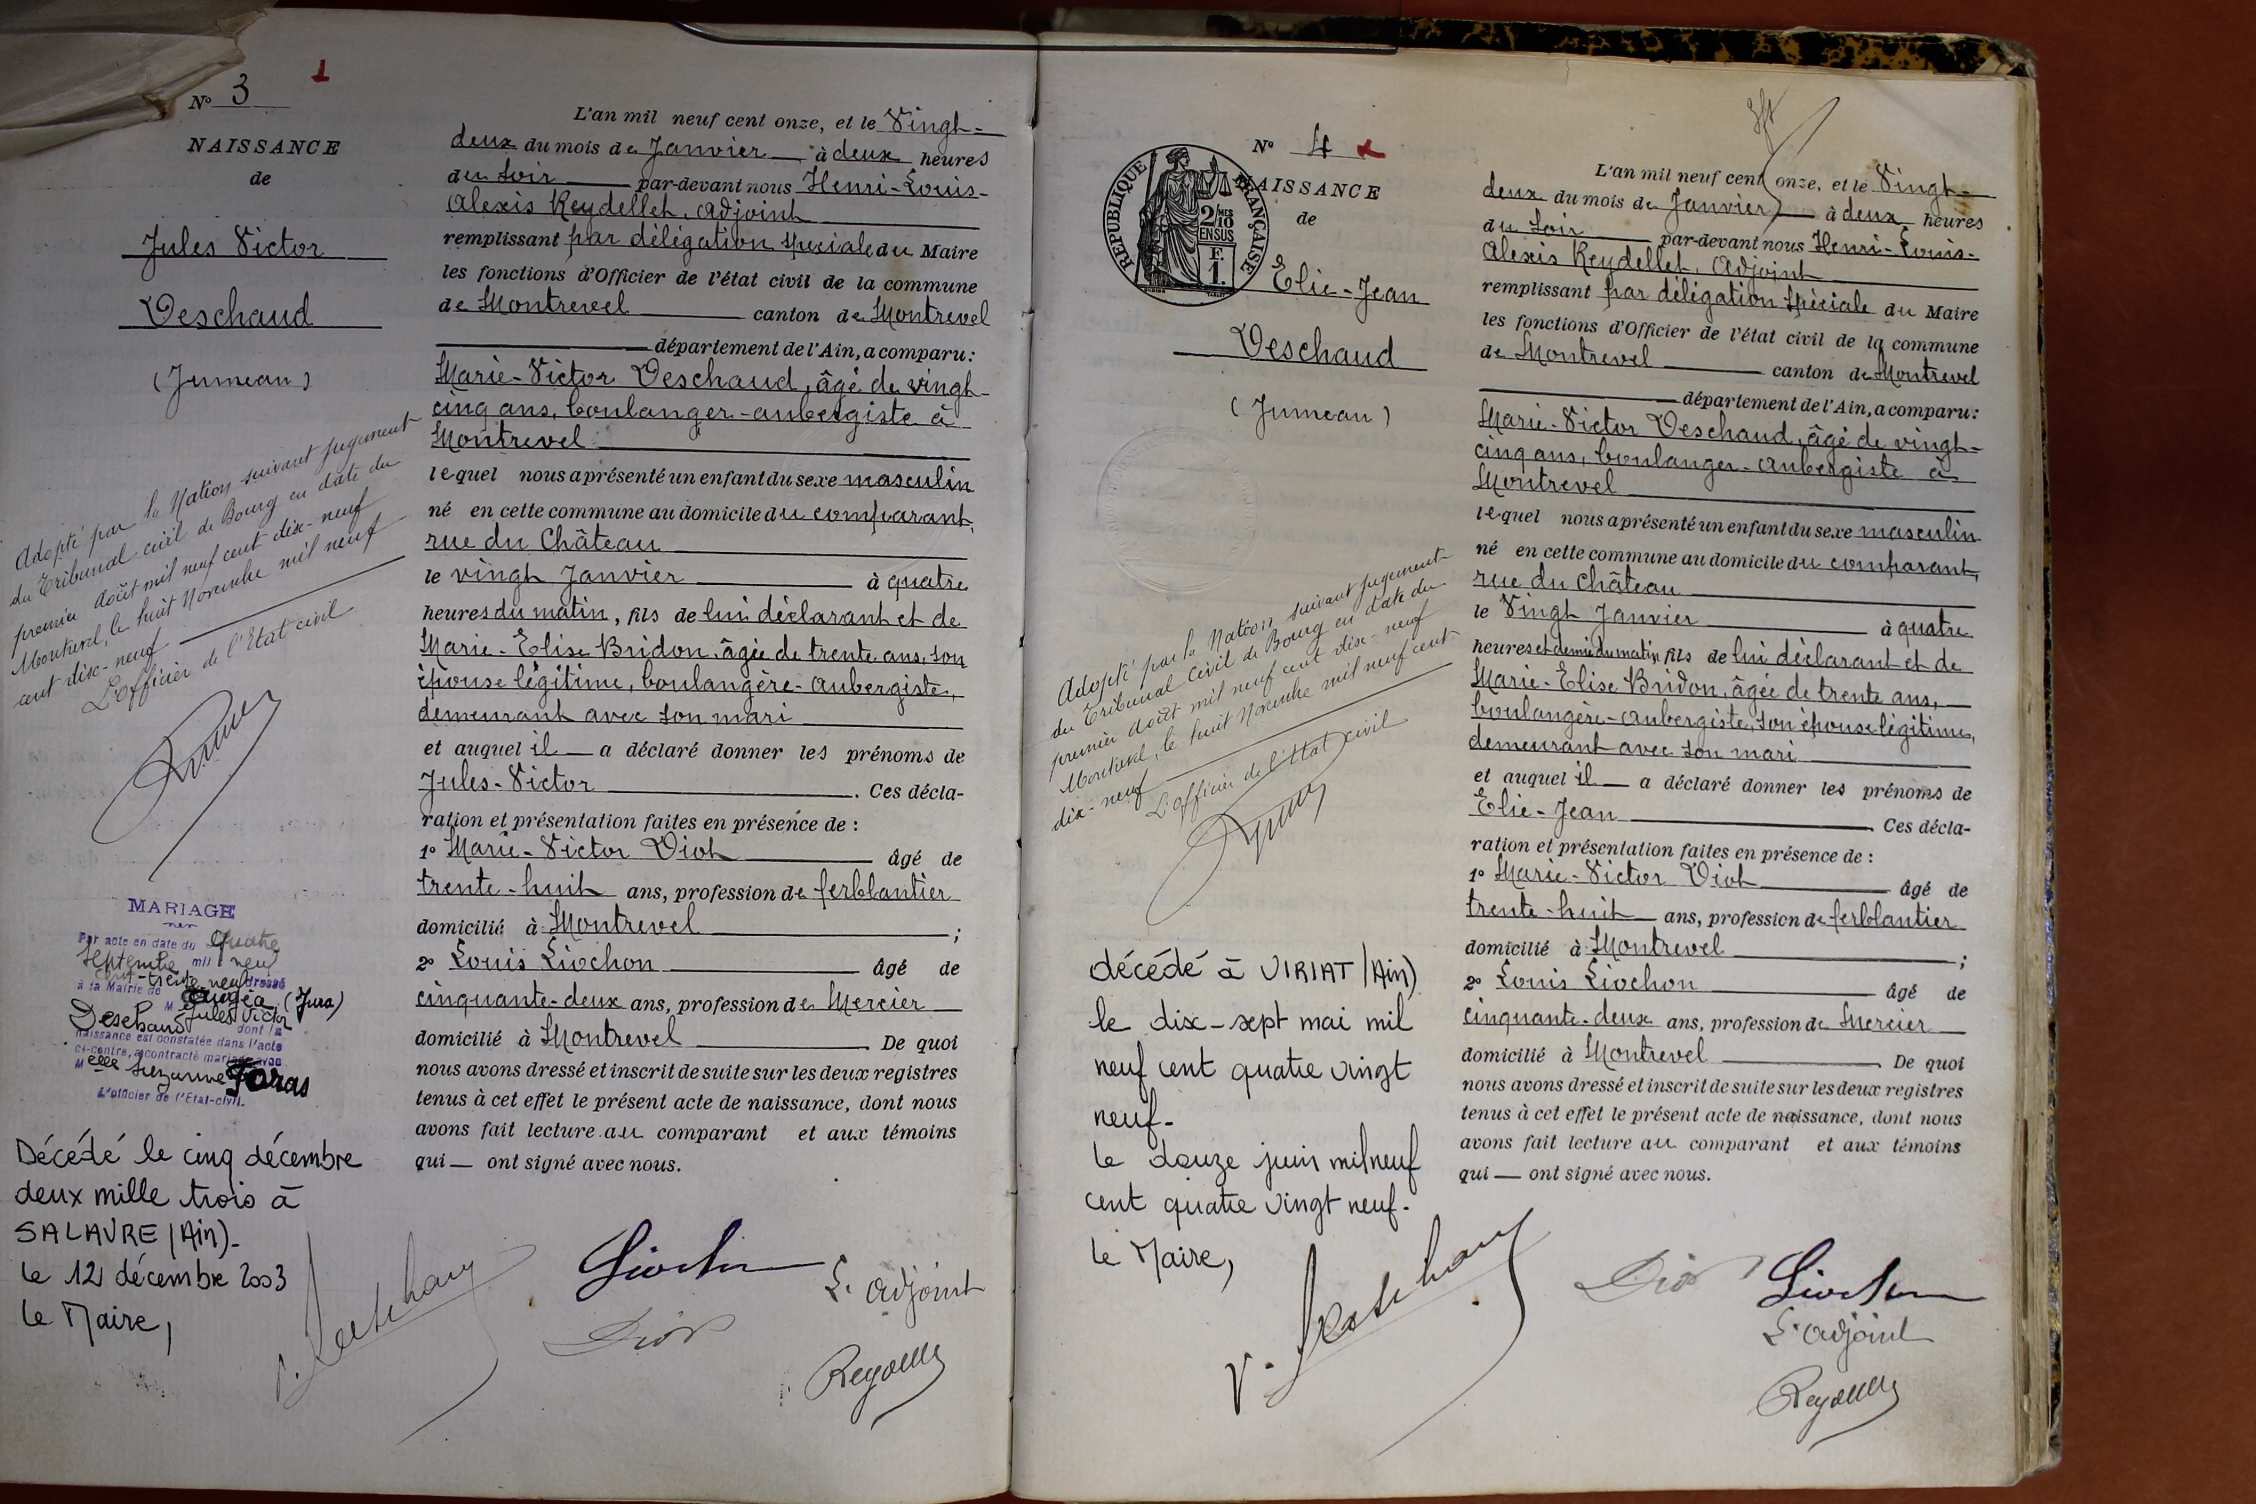 N° 3
1
NAISSANCE
de
Jules Victor
Deschaud
(Jumeau)
Adopté par la Nation suivant jugement
du Tribunal civil de Bourg en date du
premier août mil neuf cent dix-neuf
Montrevel, le huit Novembre mil neuf
cent dix-neuf
L'Officier de l'Etat civil
MARIAGE
Par acte en date du quatre
septembre mil neuf
cent-trente-neuf dressé
à la Mairie de (Jura)
M Deschaud Jules Victor
dont la
naissance est constatée dans l'acte
ci-contre, a contracté mariage avec
Melle Suzanne Foras
L'officier de l'Etat-civil.
Décédé le cinq décembre
deux mille trois à
SALAVRE (Ain)-
le 12 décembre 2003
le Maire,
L'an mil neuf cent onze, et le Vingt-
deux du mois de Janvier à deux heures
du soir par-devant nous Henri-Louis-
Alexis Reydellet, Adjoint
remplissant par délégation spéciale du Maire
les fonctions d'Officier de l'état civil de la commune
de Montrevel canton de Montrevel
département de l'Ain, a comparu:
Marie-Victor Deschaud, âgé de vingt-
cinq ans, boulanger-aubergiste à
Montrevel
lequel nous a présenté un enfant du sexe masculin
né en cette commune au domicile du comparant,
rue du Château
le vingt Janvier à quatre
heures du matin, fils de lui déclarant et de
Marie-Elise Bridon, âgée de trente ans, son
épouse légitime, boulangère-aubergiste,
demeurant avec son mari
et auquel il a déclaré donner les prénoms de
Jules-Victor . Ces décla-
ration et présentation faites en présence de :
1° Marie-Victor Diot âgé de
trente-huit ans, profession de ferblantier
domicilié à Montrevel ;
2° Louis Liochon âgé de
cinquante-deux ans, profession de Mercier
domicilié à Montrevel De quoi
nous avons dressé et inscrit de suite sur les deux registres
tenus à cet effet le présent acte de naissance, dont nous
avons fait lecture au comparant et aux témoins
qui — ont signé avec nous.
V. Deschaud
Liochon
Diot
L'adjoint
Reydellet
N° 4
RÉPUBLIQUE FRANÇAISE
2/10MES
EN SUS
F.
1.
NAISSANCE
de
Elie-Jean
Deschaud
(Jumeau)
Adopté par la Nation suivant jugement
du Tribunal Civil de Bourg en date du
premier août mil neuf cent dix-neuf
Montrevel, le huit Novembre mil neuf cent
dix-neuf
L'Officier de l'Etat civil
décédé à VIRIAT (Ain)
le dix-sept mai mil
neuf cent quatre vingt
neuf-
le douze juin mil neuf
cent quatre vingt neuf-
le Maire,
L'an mil neuf cent onze, et le Vingt-
deux du mois de Janvier à deux heures
du soir par-devant nous Henri-Louis-
Alexis Reydellet, Adjoint
remplissant par délégation spéciale du Maire
les fonctions d'Officier de l'état civil de la commune
de Montrevel canton de Montrevel
département de l'Ain, a comparu:
Marie-Victor Deschaud, âgé de vingt-
cinq ans, boulanger-aubergiste à
Montrevel
lequel nous a présenté un enfant du sexe masculin
né en cette commune au domicile du comparant,
rue du Château
le Vingt Janvier à quatre
heures et demie du matin, fils de lui déclarant et de
Marie-Elise Bridon, âgée de trente ans,
boulangère-aubergiste, son épouse légitime,
demeurant avec son mari
et auquel il a déclaré donner les prénoms de
Elie-Jean . Ces décla-
ration et présentation faites en présence de :
1° Marie-Victor Diot âgé de
trente-huit ans, profession de ferblantier
domicilié à Montrevel ;
2° Louis Liochon âgé de
cinquante-deux ans, profession de Mercier
domicilié à Montrevel De quoi
nous avons dressé et inscrit de suite sur les deux registres
tenus à cet effet le présent acte de naissance, dont nous
avons fait lecture au comparant et aux témoins
qui — ont signé avec nous.
V. Deschaud
Diot
Liochon
L'adjoint
Reydellet